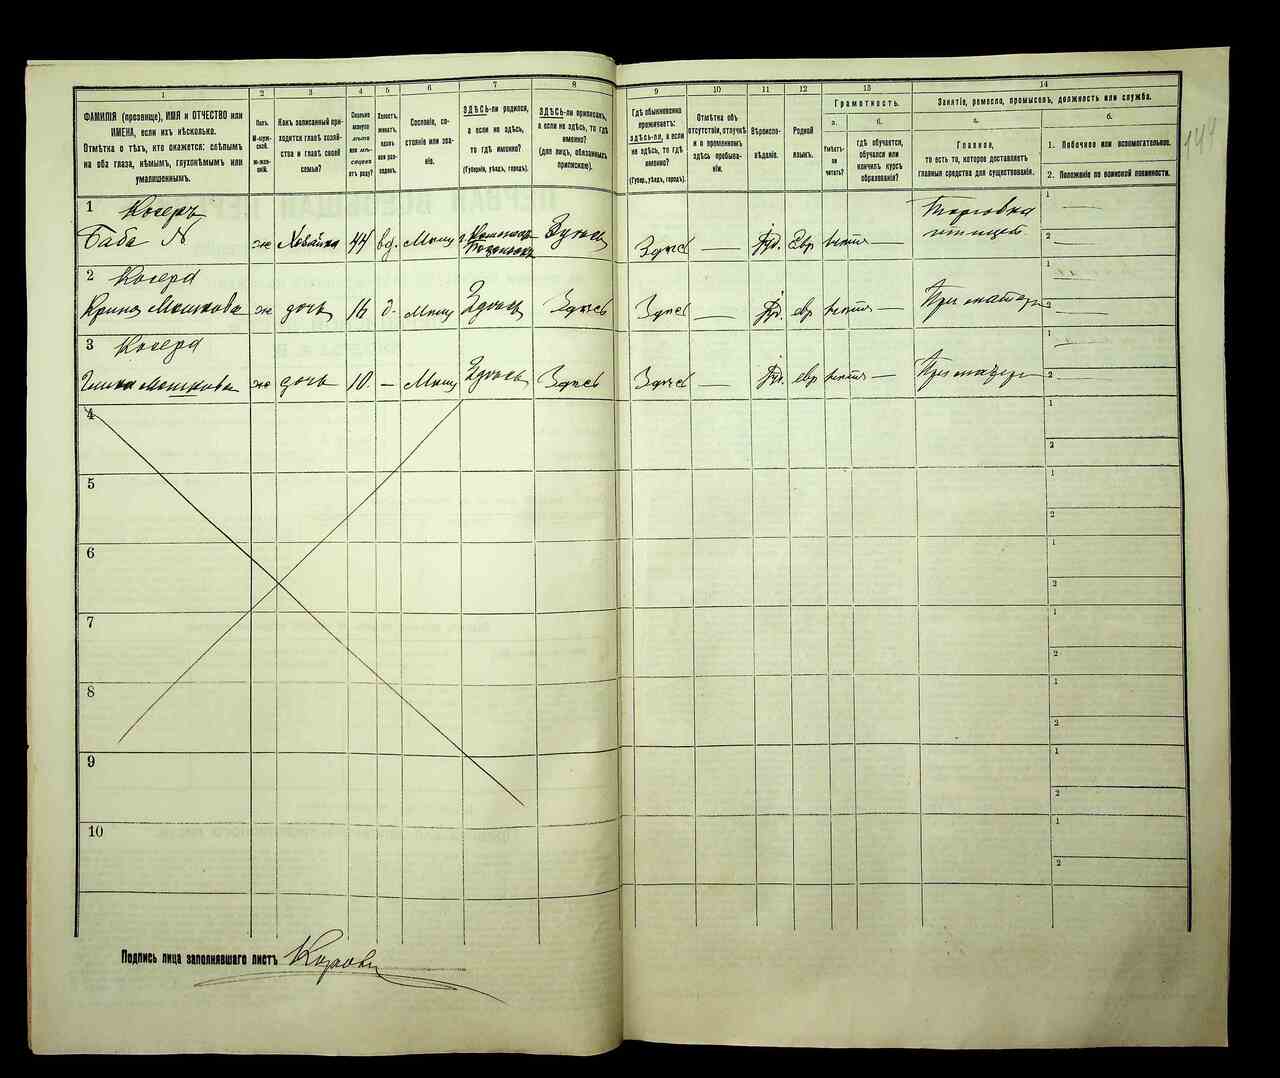 1
ФАМИЛІЯ (прозвище), ИМЯ и ОТЧЕСТВО или
ИМЕНА, если ихъ нѣсколько.
Отмѣтка о тѣхъ, кто окажется: слѣпымъ
на оба глаза, нѣмымъ, глухонѣмымъ или
умалишеннымъ.
2
Полъ.
М-муж-
ской.
ж-жен-
скій.
3
Какъ записанный при-
ходится главѣ хозяй-
ства и главѣ своей
семьи?
4
Сколько
минуло
лѣтъ
или мѣ-
сяцевъ
отъ роду?
5
Холостъ,
женатъ,
вдовъ
или раз-
веденъ.
6
Сословіе, со-
стояніе или зва-
ніе.
7
ЗДѢСЬ-ли родился,
а если не здѣсь,
то гдѣ именно?
(Губернія, уѣздъ, городъ).
8
ЗДѢСЬ-ли приписанъ,
а если не здѣсь, то гдѣ
именно?
(для лицъ, обязанныхъ
припискою).
9
Гдѣ обыкновенно
проживаетъ:
здѣсь-ли, а если
не здѣсь, то гдѣ
именно?
(Губер., уѣздъ, городъ).
10
Отмѣтка объ
отсутствіи, отлучкѣ
и о временномъ
здѣсь пребыва-
ніи.
11
Вѣроиспо-
вѣданіе.
12
Родной
языкъ.
13
Грамотность.
а.
Умѣетъ-
ли
читать?
б.
гдѣ обучается,
обучался или
кончилъ курсъ
образованія?
14
Занятіе, ремесло, промыселъ, должность или служба.
а.
Главное,
то есть то, которое доставляетъ
главныя средства для существованія.
б.
1. Побочное или вспомогательное.
2. Положеніе по воинской повинности.
144
1
Когеръ
Баба N ж Хозяйка 44 вд. Мѣщ Здѣсь Здѣсь — Іуд. Евр — Торговка птицей
1
2
2
Когера
ж дочь 16 д. Мѣщ Здѣсь Здѣсь Здѣсь — Іуд. евр — При матери
1
2
3
Когера
ж дочь 10 — Мѣщ Здѣсь Здѣсь Здѣсь — Іуд. евр — При матери
1
2
4
1
2
5
1
2
6
1
2
7
1
2
8
1
2
9
1
2
10
1
2
Подпись лица заполнявшаго листъ